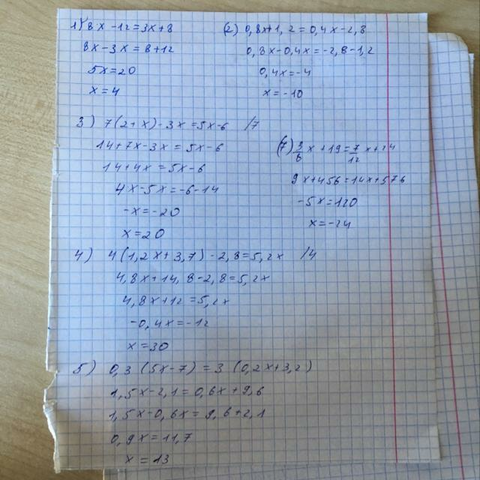 1) 8x-12=3x+8
8x-3x=8+12
5x=20
x=4
(2) 0,8x+1,2=0,4x-2,8
0,8x-0,4x=-2,8-1,2
0,4x=-4
x=-10
3) 7(2+x)-3x=5x-6 /7
14+7x-3x=5x-6
14+4x=5x-6
4x-5x=-6-14
-x=-20
x=20
x+19=
9x+456=14x+576
-5x=120
x=-24
4) 4(1,2x+3,7)-2,8=5,2x /4
4,8x+14,8-2,8=5,2x
4,8x+12=5,2x
-0,4x=-12
x=30
5) 0,3(5x-7)=3(0,2x+3,2)
1,5x-2,1=0,6x+9,6
1,5x-0,6x=9,6+2,1
0,9x=11,7
x=13